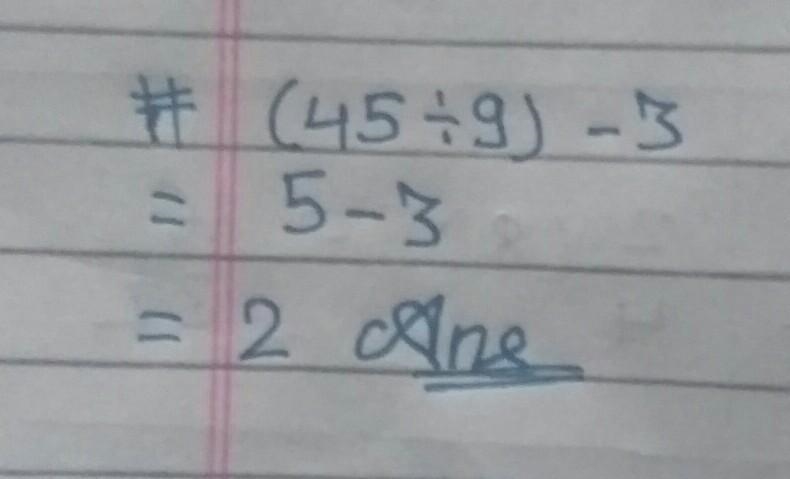 # (45÷9) - 3
= 5 - 3
= 2 Ans